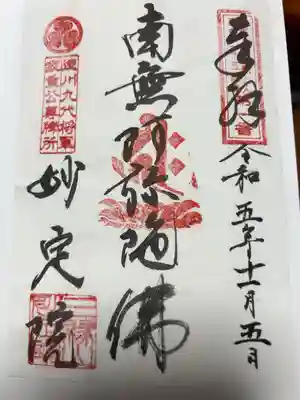 奉拝
令和五年十一月五日
南無阿弥陀佛
徳川九代将軍
家重公墓碑所
妙定院